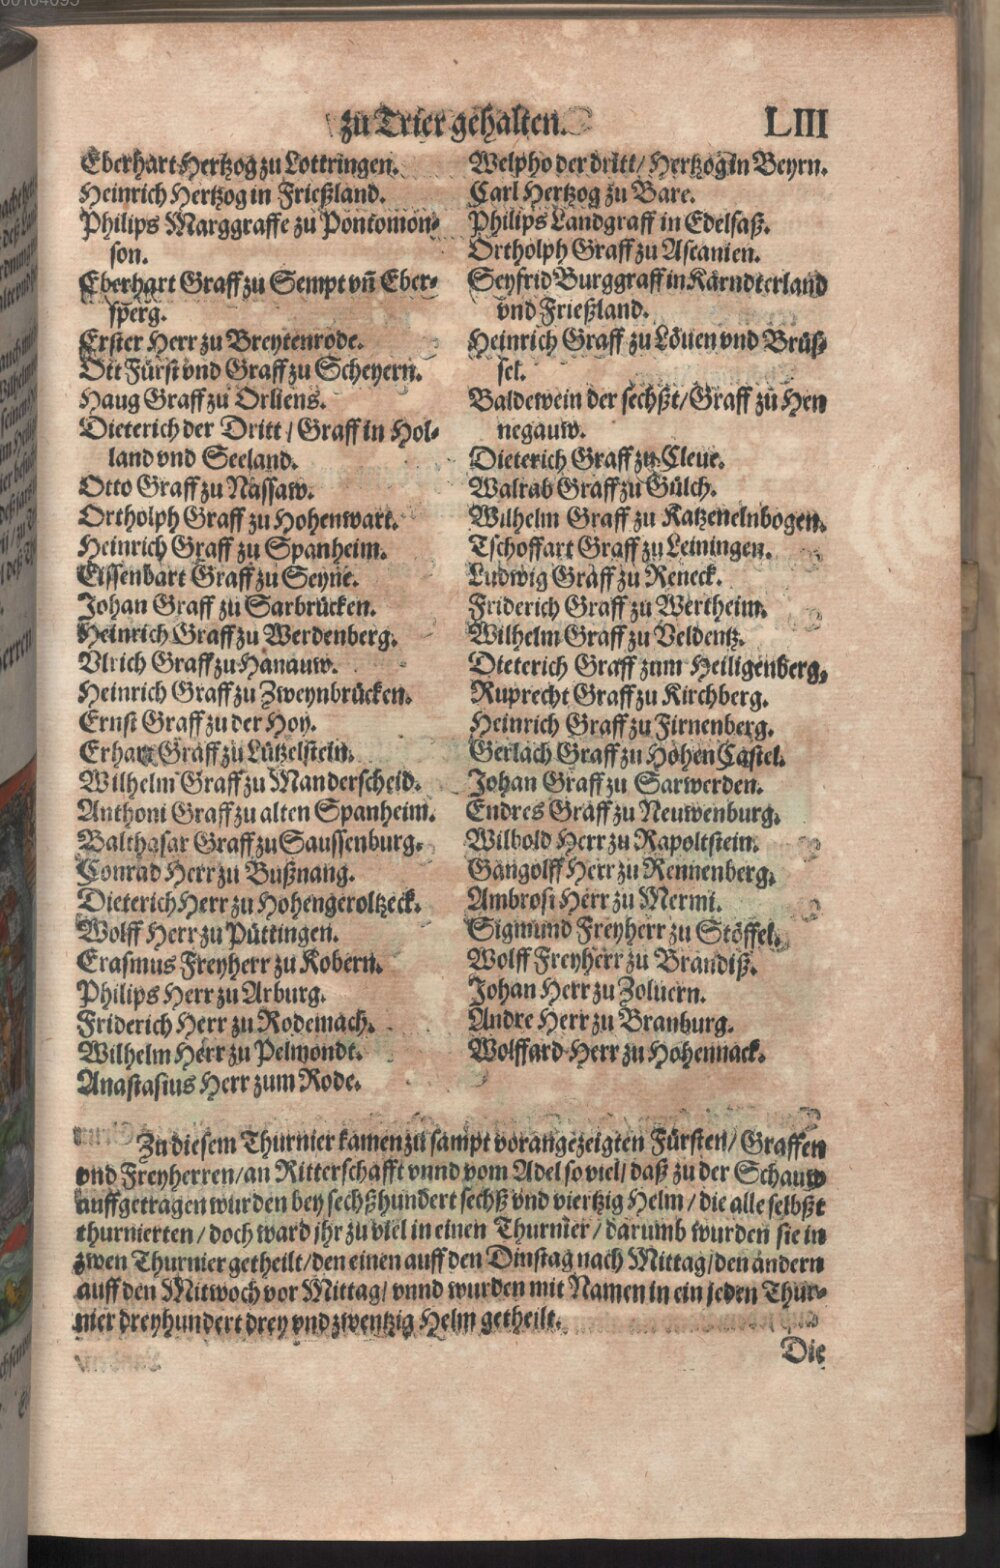 zu Trier gehalten. LIII
Eberhart Hertzog zu Lottringen.
Heinrich Hertzog in Frießland.
Philips Marggraffe zu Pontomon-
son.
Eberhart Graff zu Sempt vn̄ Eber-
sperg.
Erster Herr zu Breytenrode.
Ott Fürst vnd Graff zu Scheyern.
Haug Graff zu Orliens.
Dieterich der Dritt / Graff in Hol-
land vnd Seeland.
Otto Graff zu Nassaw.
Ortholph Graff zu Hohenwart.
Heinrich Graff zu Spanheim.
Eissenbart Graff zu Seyne.
Johan Graff zu Sarbrücken.
Heinrich Graff zu Werdenberg.
Vlrich Graff zu Hanauw.
Heinrich Graff zu Zweynbrücken.
Ernst Graff zu der Hoy.
Erhart Graff zu Lützelstein.
Wilhelm Graff zu Manderscheid.
Anthoni Graff zu alten Spanheim.
Balthasar Graff zu Saussenburg.
Conrad Herr zu Bußnang.
Dieterich Herr zu Hohengeroltzeck.
Wolff Herr zu Püttingen.
Erasmus Freyherr zu Kobern.
Philips Herr zu Arburg.
Friderich Herr zu Rodemach.
Wilhelm Herr zu Pelmondt.
Anastasius Herr zum Rode.
Welpho der dritt / Hertzog in Beyrn.
Carl Hertzog zu Bare.
Philips Landgraff in Edelsaß.
Ortholph Graff zu Ascanien.
Seyfrid Burggraff in Kärndterland
vnd Frießland.
Heinrich Graff zu Löuen vnd Brüß-
sel.
Baldewein der sechßt / Graff zu Hen
negauw.
Dieterich Graff zu Cleue.
Walrab Graff zu Gülch.
Wilhelm Graff zu Katzenelnbogen.
Tschoffart Graff zu Leiningen.
Ludwig Graff zu Reneck.
Friderich Graff zu Wertheim.
Wilhelm Graff zu Veldentz.
Dieterich Graff zum Heiligenberg.
Ruprecht Graff zu Kirchberg.
Heinrich Graff zu Firnenberg.
Gerlach Graff zu Hohen Castel.
Johan Graff zu Sarwerden.
Endres Graff zu Neuwenburg.
Wilbold Herr zu Rapoltstein.
Gangolff Herr zu Rennenberg.
Ambrosi Herr zu Mermi.
Sigmund Freyherr zu Stöffel.
Wolff Freyherr zu Brandiß.
Johan Herr zu Zoluern.
Andre Herr zu Branburg.
Wolffard Herr zu Hohennack.
Zu diesem Thurnier kamen zu sampt vorangezeigten Fürsten / Graffen
vnd Freyherren / an Ritterschafft vnnd vom Adel so viel / daß zu der Schauw
auffgetragen wurden bey sechßhundert sechß vnd viertzig Helm / die alle selbßt
thurnierten / doch ward jhr zu viel in einen Thurnier / darumb wurden sie in
zwen Thurnier getheilt / den einen auff den Dinstag nach Mittag / den andern
auff den Mitwoch vor Mittag / vnnd wurden mit Namen in ein jeden Thur-
nier dreyhundert drey vnd zwentzig Helm getheilt.
Die